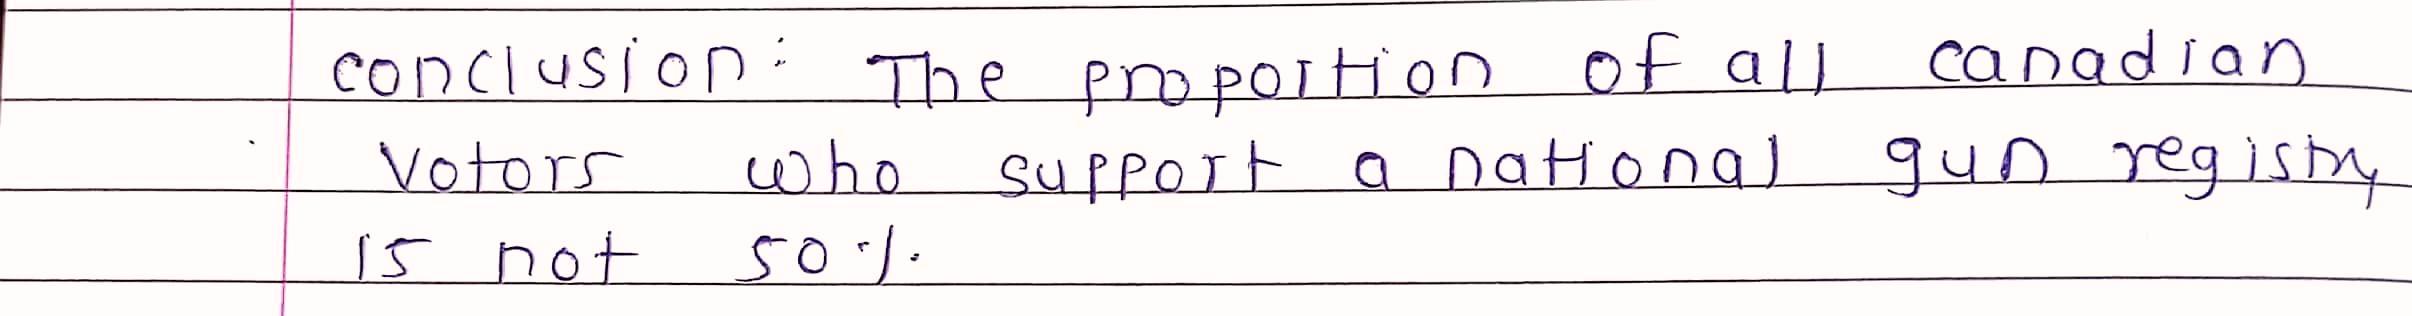 conclusion: The proportion of all canadian
votors who support a national gun registry
is not 50%.